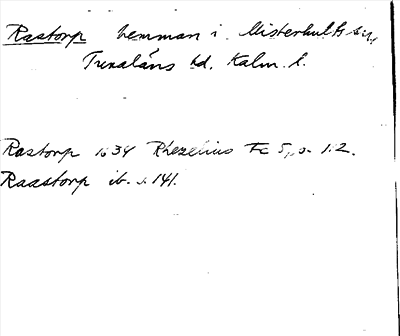 Rastorp hemman i Misterhults sn,
Tunaläns hd. Kalm. l.
Rastorp 1634 Rhezelius Fc 5, s. 12.
Raastorp ib. s. 141.